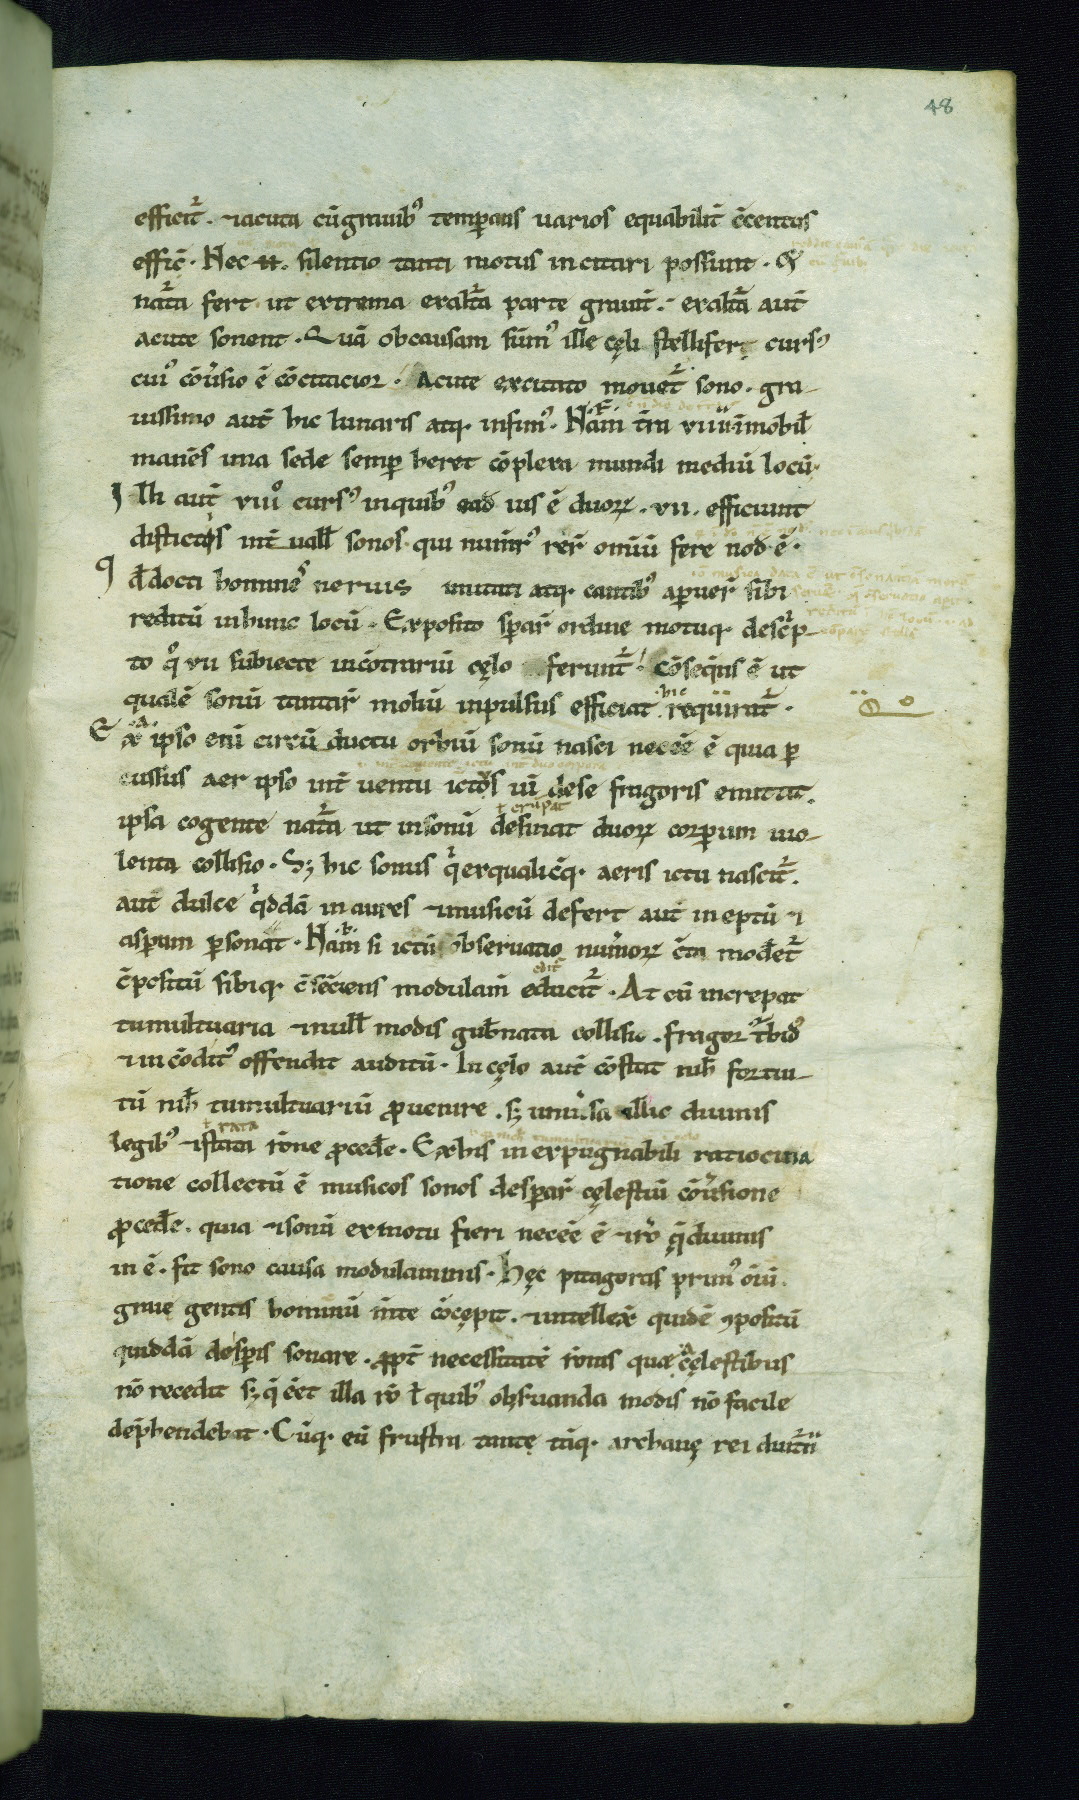 48
efficit᷑. ⁊acuta cū grauib᷒ temꝑans uarios equabilit̄ c̄centus
effic̄. Nec .n. silentio tanti motus incitari possunt. Et
nat᷑a fert ut extrema exalt᷑a parte grauit̄. exalt᷑a aut̄
acute sonent. Quā obcausam sūm᷒ ille cęli stellifer curs᷒
cui᷒ cōu̓sio ē cōcitacior. Acute excitato mouet᷑ sono. gra-
uissimo aut̄ hic lunaris atq. infim᷒. Nam t̄ra viiii īmobil̄
manēs una sede semꝑ heret cōplexa mundi mediū locū.
Illi aut̄ viii curs᷒ inquib᷒ ead uis ē duoꝝ. vii. efficiunt
distictos int̄uall̄ sonos. qui num̄᷒ reꝝ omīū fere nod ē.
qd̄ docti homines neruis imitati atq. cantib᷒ aꝑuer̄ sibi
reditū inhunc locū. Exposito spar̄ ordine motuq. desc̓p-
to q̊ vii subiecte incōtrariū cęlo ferunt᷑. cōseq̄ns ē ut
qualē sonū tantar̄ moliū inpulsus efficiat hic reqūirat᷑.
Ex ipso enī circū ductu orbiū sonū nasci necēe ē quia ꝑ
cussus aer ipso int̄ uentu ict᷒ uī dese fragoris emittit.
ł erūpat
ipsa cogente nat᷑a ut insonū desinat duoꝝ corꝑum uio-
lenta collisio. Sꝫ hic sonus q̓ exqualicq̄. aeris ictu nascit᷑.
aut dulce q̓ddā in aures ⁊musicū defert aut ineptū ⁊
asꝑum ꝑsonat. Nam si ictū obseruatio num̓oꝝ c̄ta modet᷑
edit᷑
c̄positū sibiq. c̄seciens modulam̄ educit᷑. At cū increpat
tumultuaria ⁊null̄ modis gub̄nata collisio. fragor t᷑bid᷒
⁊incōdit᷒ offendit auditū. In cęlo aut̄ cōstat nih̄ fortui-
tū nih̄ tumultuariū ꝓuenire. sꝫ uniu̓sa illic diuinis
ł rata
legib᷒ ⁊statuta rōne ꝓcedē. Exhis inexpugnabili ratiocina
tione collectū ē musicos sonos desperar̄ cęlestiū cōu̓sione
ꝓcedē. quia ⁊sonū exmotu fieri necēe ē ⁊rō q̄ diuinis
in ē. fit sono causa modulaminis. Hęc pitagoras prim᷒ oīū
graię gentis hominū m̄te cōcępit. ⁊intellex̄ quidē ꝯpositū
quiddā desꝑis sonare. ꝓpt̄ necessitatē rōnis quae ācęlestibus
nō recedit sꝫ q̄ cēt illa rō ł quib᷒ obseruanda modis nō facile
dep̄hendebat. Cūq. eū frustra tantę tāq. archanę rei diut᷑n